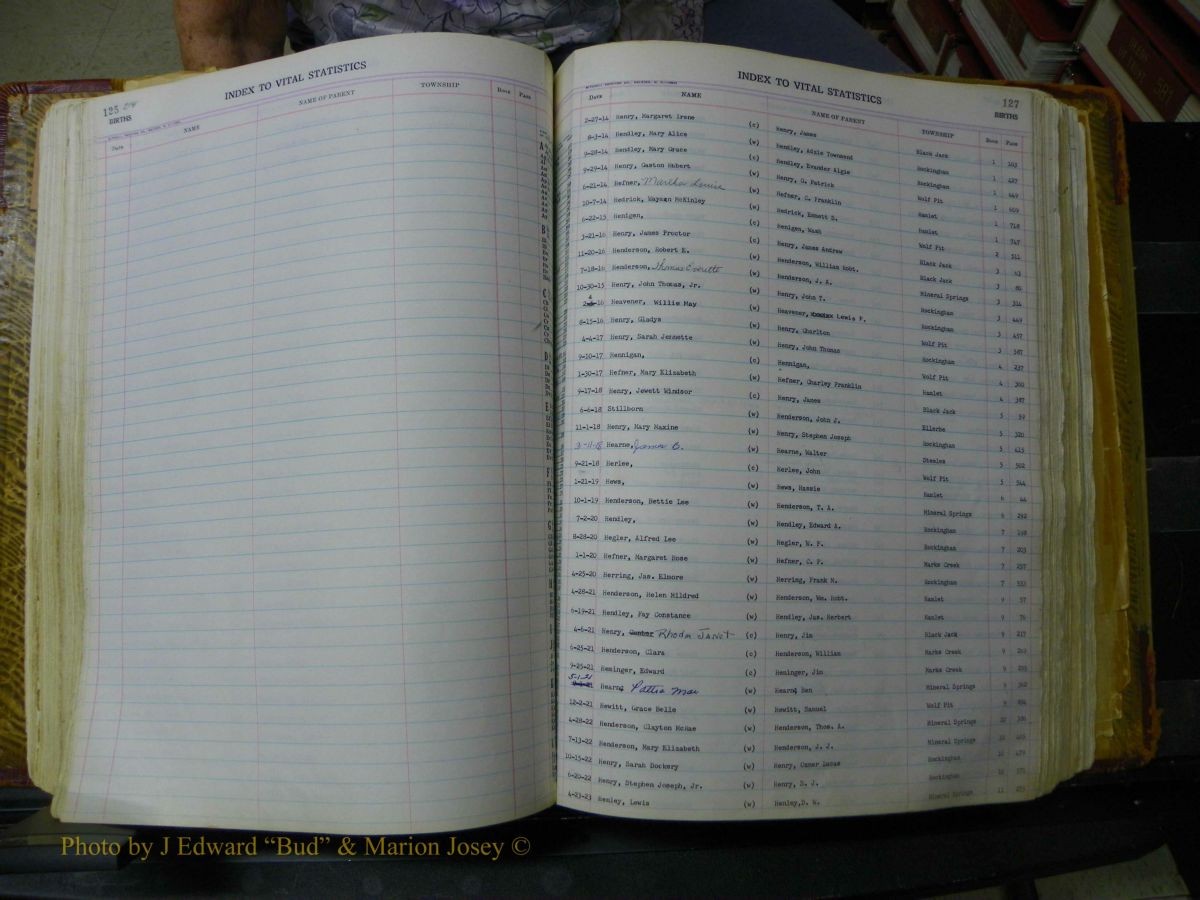 125
INDEX TO VITAL STATISTICS
BIRTHS
Date NAME NAME OF PARENT TOWNSHIP Book Page
INDEX TO VITAL STATISTICS 127
BIRTHS
Date NAME NAME OF PARENT TOWNSHIP Book Page
2-27-14 Henry, Margaret Irene (c) Henry, James Black Jack 1 103
8-3-14 Hendley, Mary Alice (w) Hendley, Adzie Townsend Rockingham 1 487
9-28-14 Hendley, Mary Grace (c) Hendley, Evander Algie Rockingham 1 649
9-29-14 Henry, Gaston Hubert (w) Henry, G. Patrick Wolf Pit 1 609
6-21-14 Hefner, Martha Louise (w) Hefner, C. Franklin Hamlet 1 718
10-7-14 Hedrick, Wayman McKinley (w) Hedrick, Emmett D. Hamlet 1 747
6-22-15 Henigen, (c) Henigen, Wash Wolf Pit 2 511
3-21-16 Henry, James Proctor (c) Henry, James Andrew Black Jack 3 43
11-20-16 Henderson, Robert E. (w) Henderson, William Robt. Black Jack 3
7-18-16 Henderson, Thomas Everette (w) Henderson, J. A. Mineral Springs 3 314
10-30-15 Henry, John Thomas, Jr. (w) Henry, John T. Rockingham 3 449
2-4-16 Heavener, Willie May (w) Heavener, Lewis P. Rockingham 3 457
6-15-16 Henry, Gladys (w) Henry, Charlton Wolf Pit 3 587
4-4-17 Henry, Sarah Jennette (w) Henry, John Thomas Rockingham 4 237
9-10-17 Hennigan, (c) Hennigan, Wolf Pit 4 300
1-30-17 Hefner, Mary Elizabeth (w) Hefner, Charley Franklin Hamlet 4 387
9-17-18 Henry, Jewett Windsor (c) Henry, James Black Jack 5 59
6-6-18 Stillborn (w) Henderson, John J. Ellerbe 5 320
11-1-18 Henry, Mary Maxine (w) Henry, Stephen Joseph Rockingham 5 415
2-11-18 Hearne, James B. (w) Hearne, Walter Steeles 5 502
9-21-18 Herlee, (c) Herlee, John Wolf Pit 5 544
1-21-19 Hews, (w) Hews, Hassie Hamlet 6 44
10-1-19 Henderson, Bettie Lee (w) Henderson, T. A. Mineral Springs 6 292
7-2-20 Hendley, (w) Hendley, Edward A. Rockingham 7 198
8-28-20 Hegler, Alfred Lee (w) Hegler, W. P. Rockingham 7 203
1-1-20 Hefner, Margaret Rose (w) Hefner, C. F. Marks Creek 7 257
4-25-20 Herring, Jas. Elmore (w) Herring, Frank N. Rockingham 7 533
4-28-21 Henderson, Helen Mildred (w) Henderson, Wm. Robt. Hamlet 9 57
6-19-21 Hendley, Fay Constance (w) Hendley, Jas. Herbert Hamlet 9 76
4-6-21 Henry, Rhoda Janet (c) Henry, Jim Black Jack 9 217
6-25-21 Henderson, Clara (c) Henderson, William Marks Creek 9
9-25-21 Heminger, Edward (c) Heminger, Jim Marks Creek 9
5-1-21 Hearne Pattie Mae (w) Hearne Ben Mineral Springs 9
12-2-21 Hewitt, Grace Belle (w) Hewitt, Samuel Wolf Pit 9
4-28-22 Henderson, Clayton McRae (w) Henderson, Thos. A. Mineral Springs 10
7-13-22 Henderson, Mary Elizabeth (w) Henderson, J. J. Mineral Springs 10
10-15-22 Henry, Sarah Dockery (w) Henry, Osmer Lucas Rockingham 10
6-20-22 Henry, Stephen Joseph, Jr. (w) Henry, S. J. Rockingham 10
4-23-23 Henley, Lewis (w) Henley, D. W. Mineral Springs 11
Photo by J Edward “Bud” & Marion Josey ©